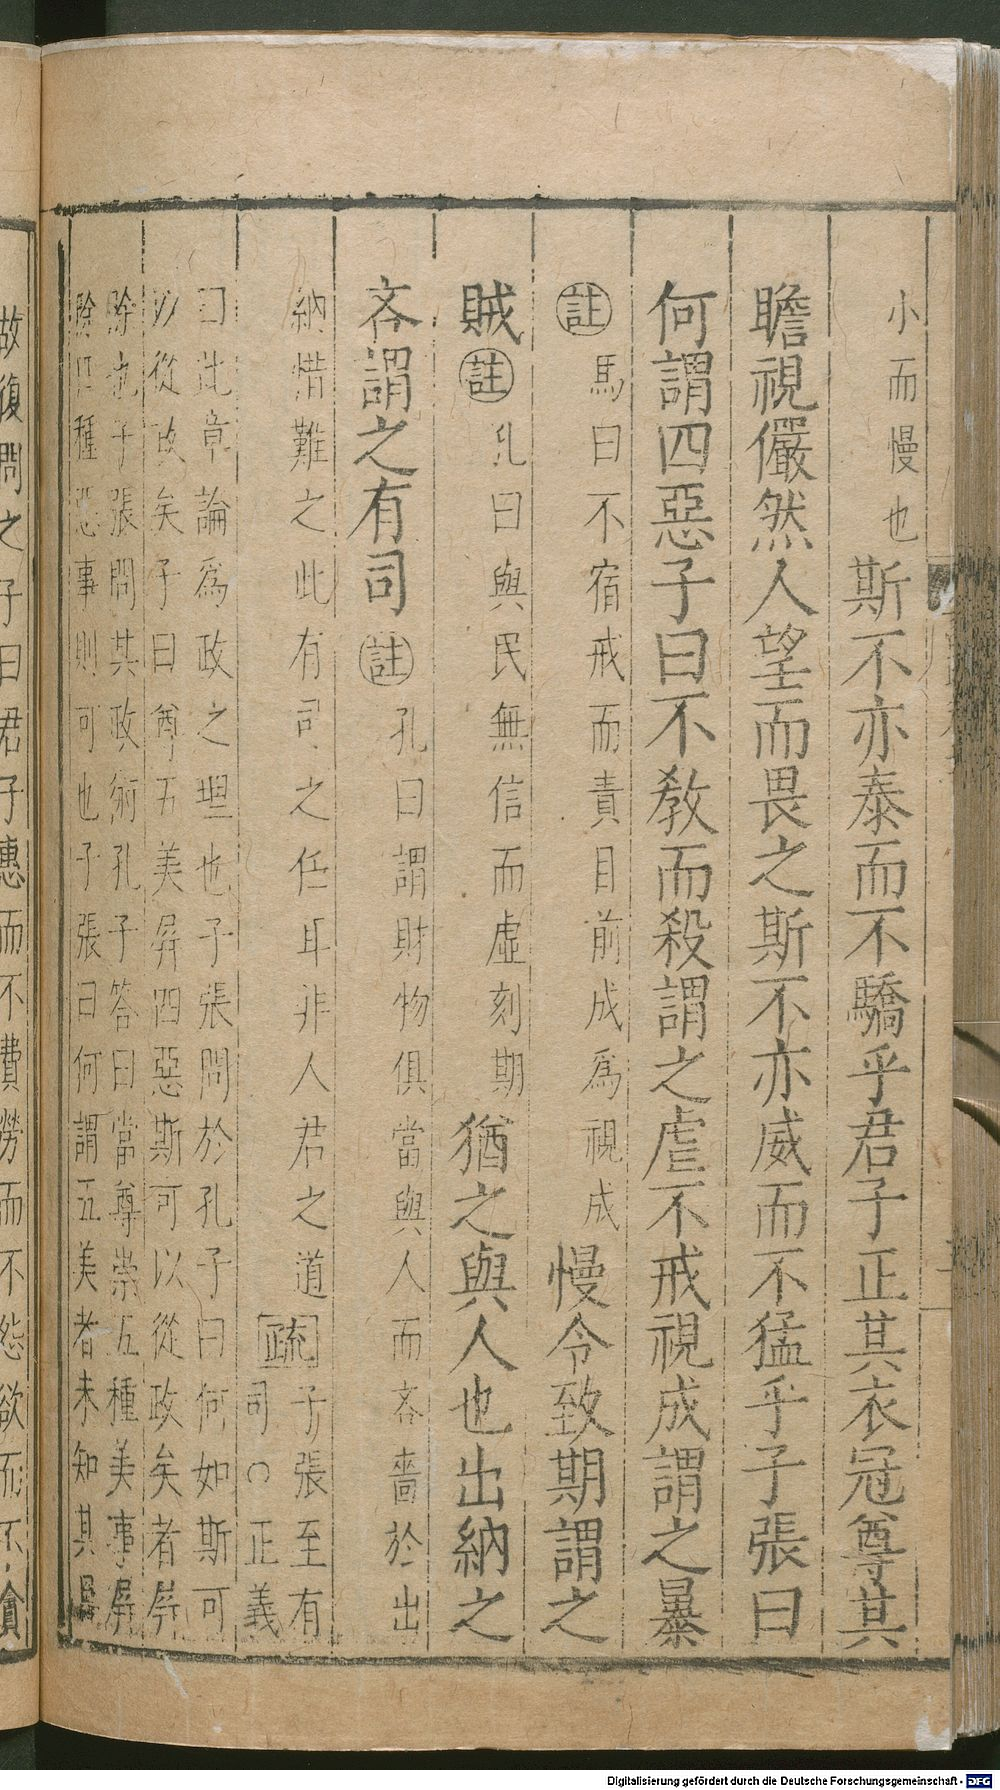 小而慢也斯不亦泰而不驕乎君子正其衣冠尊其
瞻視儼然人望而畏之斯不亦威而不猛乎子張曰
何謂四惡子曰不教而殺謂之虐不戒視成謂之暴
註馬曰不宿戒而責目前成爲視成慢令致期謂之
賊註孔曰與民無信而虛刻期猶之與人也出納之
吝謂之有司註孔曰謂財物俱當與人而吝嗇於出
納惜難之此有司之任耳非人君之道疏子張至有
司○正義
曰此章論爲政之理也子張問於孔子曰何如斯可
以從政矣子曰尊五美屏四惡斯可以從政矣者屏
除也子張問其政術孔子答曰當尊崇五種美事屏
除四種惡事則可也子張曰何謂五美者未知其
故復問之子曰君子惠而不費勞而不怨欲而不貪
Digitalisierung gefördert durch die Deutsche Forschungsgemeinschaft - DFG